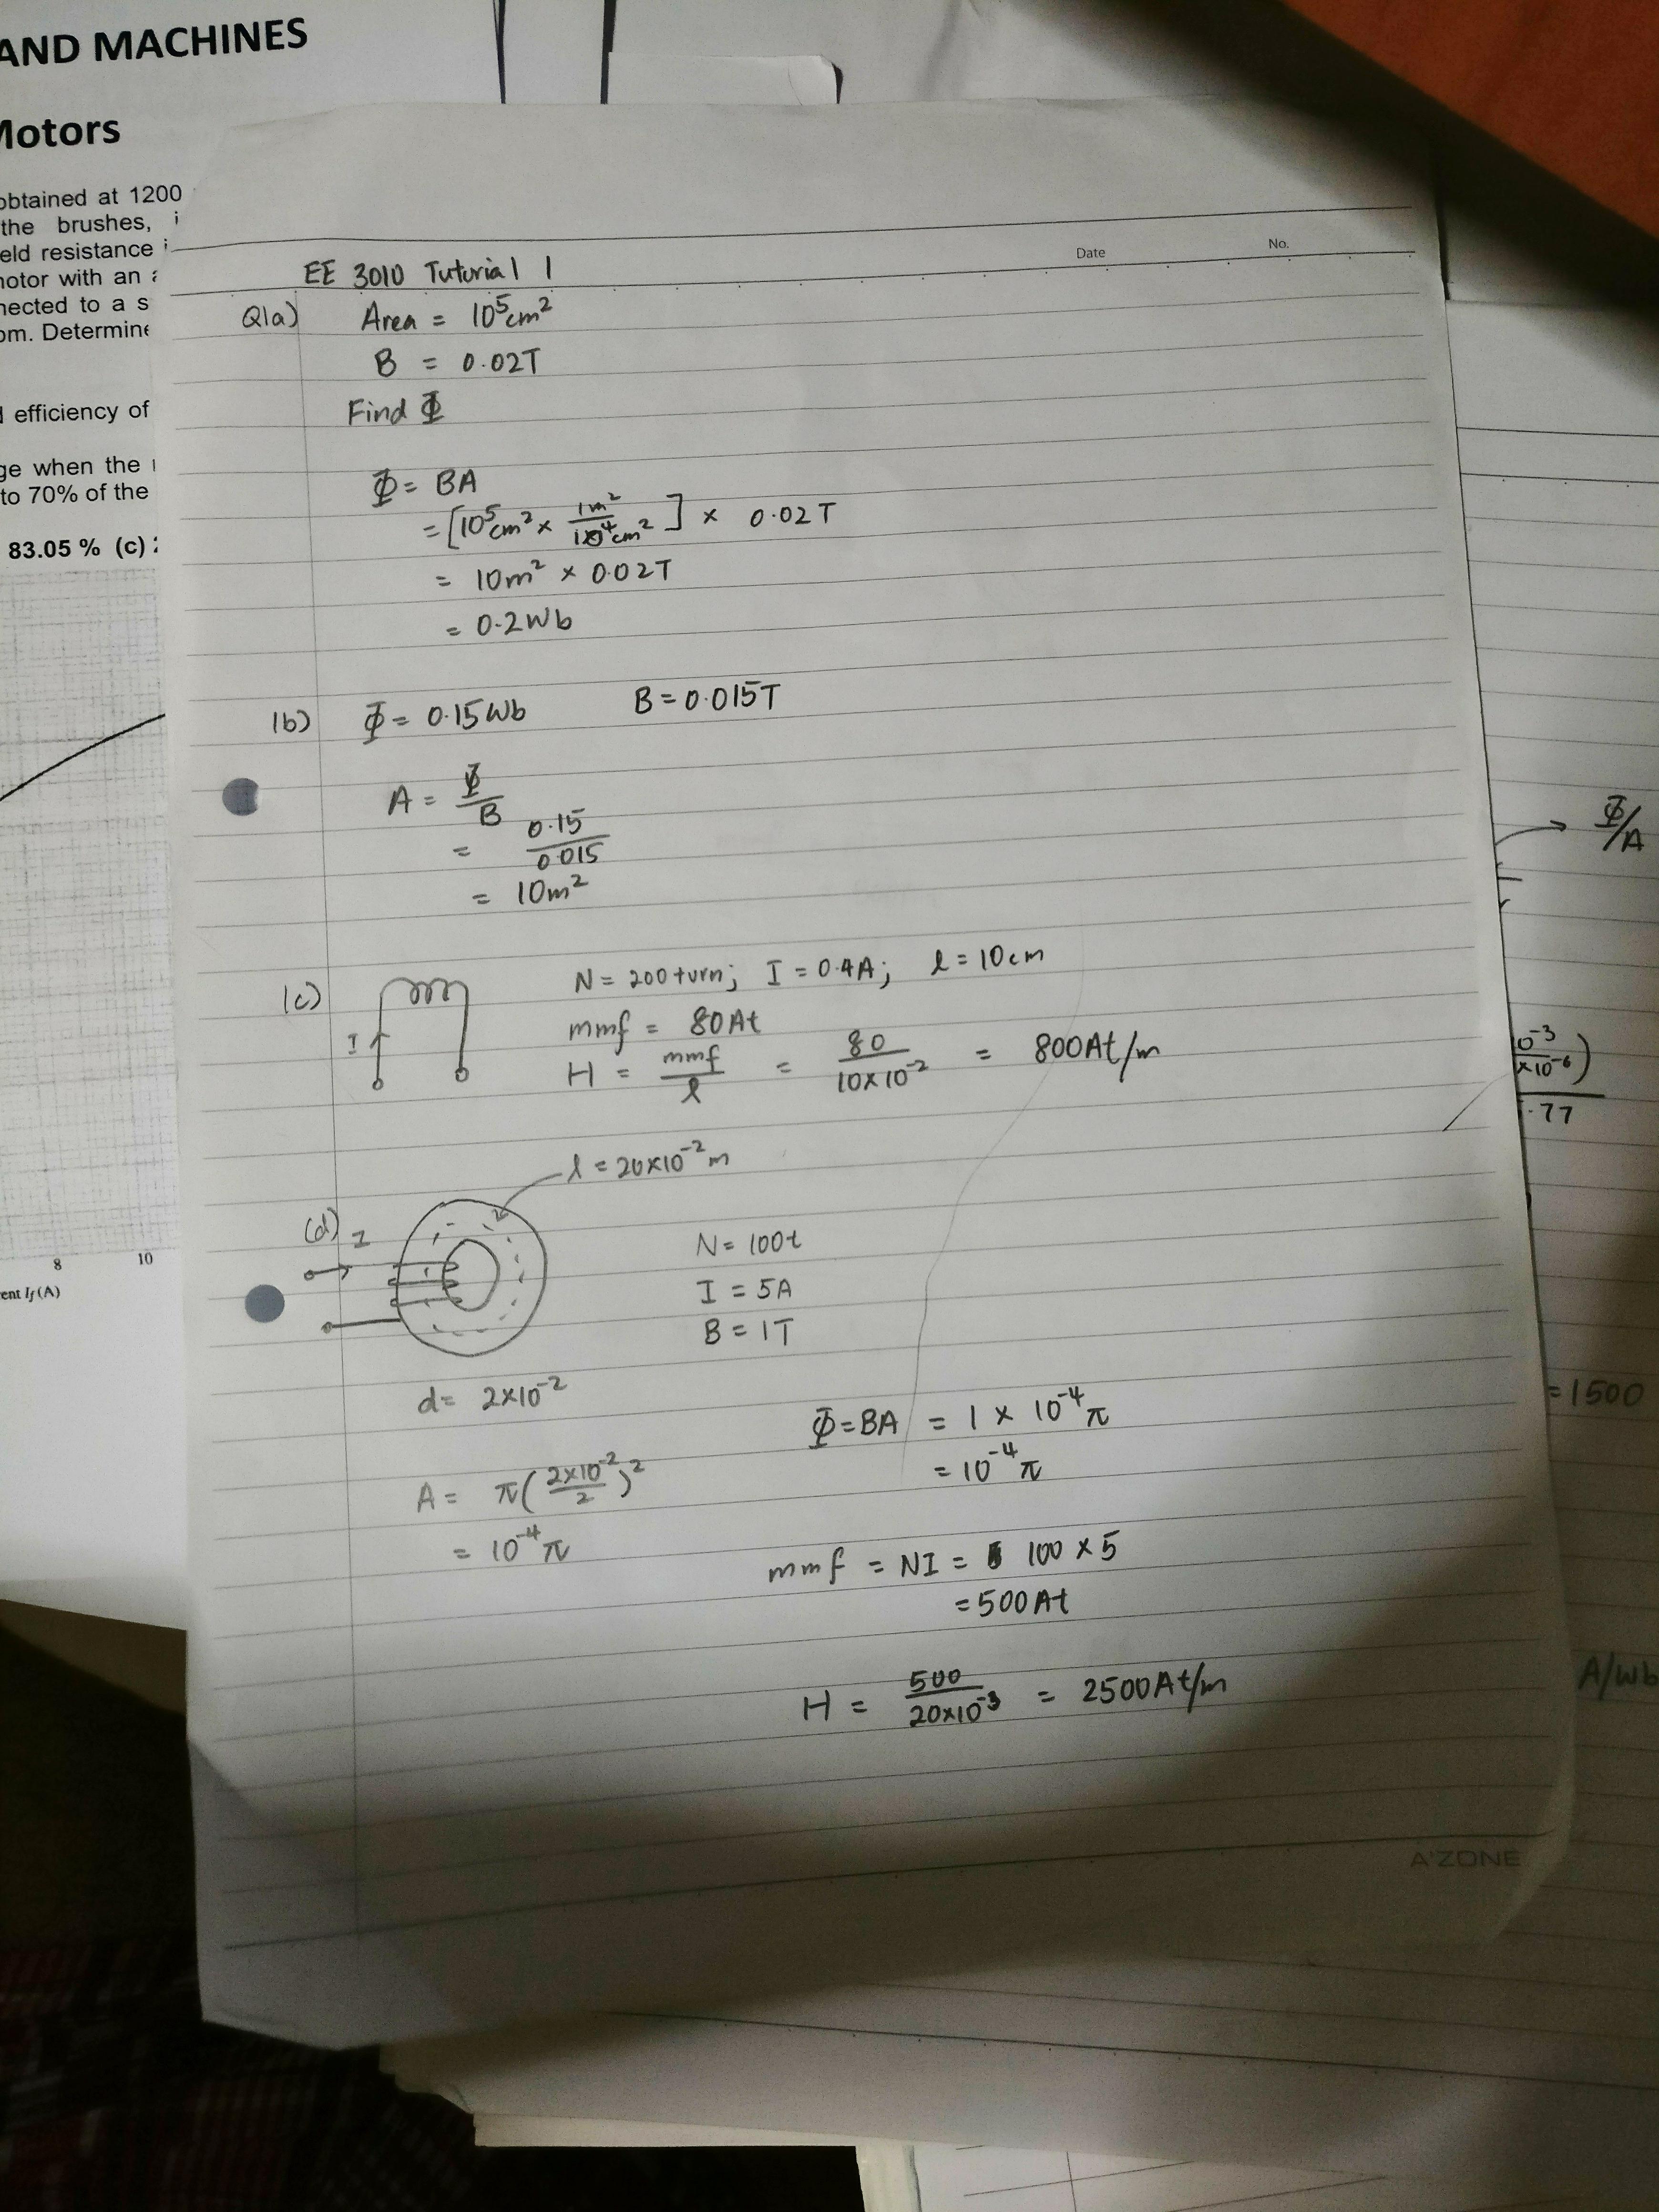 AND MACHINES
Motors
obtained at 1200
the brushes, i
eld resistance i
motor with an a
nected to a s
om. Determine
d efficiency of
ge when the
to 70% of the
83.05 % (c) 2
8 10
ent If (A)
Date No.
EE 3010 Tutorial 1
Q1a) Area = 10⁵cm²
B = 0.02T
Find Φ
Φ = BA
= [10⁵cm² × 1m²/10⁴cm²] × 0.02T
= 10m² × 0.02T
= 0.2Wb
1b) Φ = 0.15Wb B = 0.015T
A = Φ/B
= 0.15/0.015
= 10m²
1c) N = 200turn; I = 0.4A; l = 10cm
I
mmf = 80At
H = mmf/l = 80/10×10⁻² = 800At/m
l = 20×10⁻²m
(d) I
N = 100t
I = 5A
B = 1T
d = 2×10⁻²
A = π(2×10⁻²/2)²
= 10⁻⁴π
Φ = BA = 1 × 10⁻⁴π
= 10⁻⁴π
mmf = NI = 100 × 5
= 500At
H = 500/20×10⁻³ = 2500At/m
A'ZONE
Φ/A
0⁻³
×10⁻⁶)
.77
= 1500
A/Wb